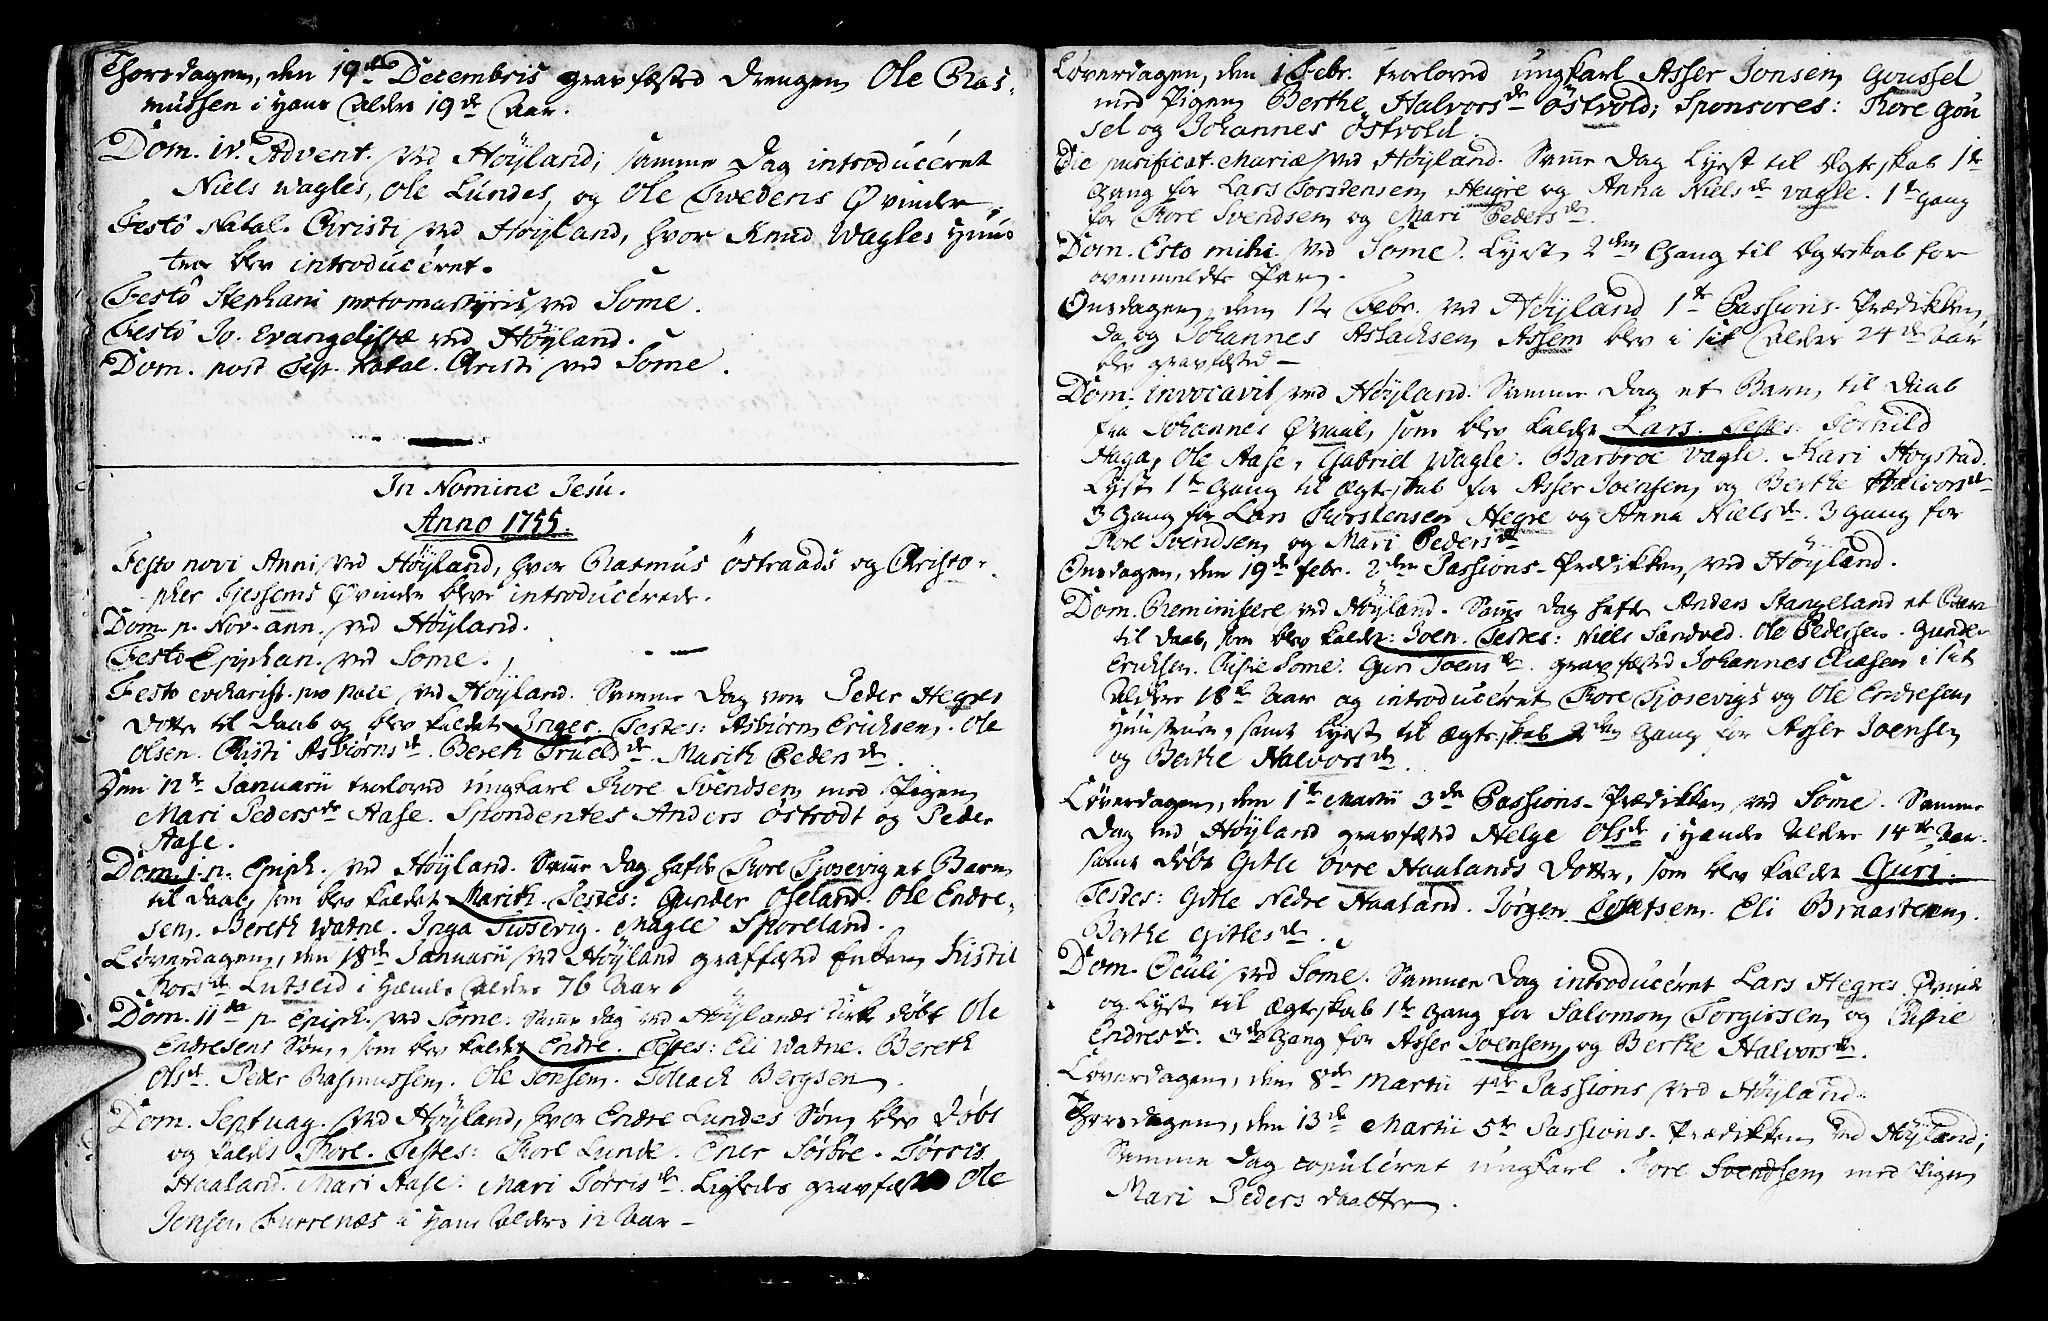 Thorsdagen, den 19de Decembris gravfæsted Drengen Ole Ras-
mussen i hans Alders 19de Aar.
Dom. iv. Advent. ved Höyland, samme Dag introduceret
Niels Wagles, Ole Lundes, og Ole Twedens Qvinder.
Festô Natal. Christi ved Höyland, hvor Knud Wagles Huus
troe blev introduceret.
Festô Stephani protomartyris, ved Some.
Festô Jo. Evangelistæ ved Höyland.
Dom. post Fest. Natal. Christi ved Some.
In Nomine Jesu.
Anno 1755.
Festo novi Anni, ved Höyland, hvor Rasmus Östraads og Christo-
pher Qvinder bleve introducerede.
Dom. p. Nov. ann. ved Höyland.
Festo Epiphan. ved Some.
Festo pro pace ved Höyland. Samme Dag var Peder Hegres
Dotter til Daab og blev kaldet Inger. Testes: Asbiørn Erichsen. Ole
Olsen. Asbiørns dr. Bereth Truels dr. Marith Peders dr.
Den 12te Januarii troloved ungkarl Tore Svendsen med Pigen
Mari Peders dr Aase. Spondentes Anders Östrodt og Peder
Aase.
Dom. 1. p. Epiph. ved Höyland. Samme Dag hafde Tore Tiosevig et Barn
til Daab, som blev kaldet Marith. Testes: Gunder Oseland. Ole Endre-
sen. Bereth Watne. Inga Tiosevig. Magle Sporeland.
Løverdagen, den 18de Januarii ved Höyland graffæsted Enken Kistil
Tors dr Lutseid i hendes Alders 76 Aar.
Dom. 11da p. Epiph. ved Some. Samme dag ved Höylands Kirke döbt Ole
Endresens Søn, som blev kaldet Endre. Testes: Eli Watne. Bereth
Ols dr. Peder Rasmussen. Ole Tonsem. Tollach Bergsen.
Dom. Septuag. ved Höyland, hvor Endre Lundes Søn blev Döbt
og kaldet Tore. Testes: Tore Lunde. Ener Sörböe. Törris
Haaland. Mari Aase. Mari Törris dr. Ligeledes gravfæsted Ole
Jensen Furrenæs i hans Alders 12 Aar.
Løverdagen, den 1 Febr. troloved ungkarl Asser Jonsen Goussel
med Pigen Berthe Halvors dr Östvold; Sponsores: Tore Gou
sel og Johannes Östvold.
Die purificat. Mariæ ved Höyland. Samme Dag Lyst til Ægteskab 1te
Gang for Lars Torstensen Heigre og Anna Niels dr Vagle. 1te Gang
for Tore Svendsen og Mari Peders dr.
Dom. Esto mihi. ved Some. Lyst 2den Gang til Ægteskab for
ovenmeldte Par.
Onsdagen, den 12 Febr. ved Höyland 1te Passions-Prædikken
da og Johannes Aslachsen Assem blev i sit Alders 24de Aar
blev gravfæsted
Dom. Invocavit ved Höyland. Samme Dag et Barn til Daab
fra Johannes Qvaal, som blev kaldet Lars. Testes: Torhild
Haga, Ole Aase. Gabriel Wagle. Barbroe Vagle. Kari Hogstad.
Lyst 1te Gang til Ægteskab for Asser Joensen og Berthe Halvors dr
3 Gang for Lars Thorstensen Hegre og Anna Niels dr. 3 Gang for
Tore Svendsen og Mari Peders dr
Onsdagen, den 19de Febr. 2den Passions-Prædikken, ved Höyland.
Dom. Reminiscere ved Höyland. Samme Dag hafde Anders Stangeland et Barn
til Daab, som blev kaldet: Joen. Testes: Niels Sandved. Ole Pedersen. Gunder
Erichsen. Some. Guri Joens dr. gravfæsted Johannes Eliasen i sit
Alders 18de Aar og introduceret Tore Tjosevigs og Ole Endresens
Huustruer, samt Lyst til Ægteskab 2den Gang for Asser Joensen
og Berthe Halvors dr.
Løverdagen, den 1te Martii 3de Passions-Prædikken ved Some. Samme
Dag ved Höyland gravfæsted Helge Ols dr i hendes Alders 14de Aar.
samt döbt Gitle övre Haalands Dotter, som blev kaldet Guri.
Testes: Gitle Nedre Haaland. Jörgen. Eli Braasteen.
Berthe Gitles dr.
Dom. Oculi ved Some. Samme Dag introduceret Lars Hegres Qvinde
og Lyst til Ægteskab 1te Gang for Salomon Torgiersen og
Endres dr. 3de Gang for Asser Joensen og Berthe Halvors dr.
Løverdagen, den 8de Martii 4de Passions ved Höyland.
Thorsdagen, den 13de Martii 5te Passions-Prædikken ved Höyland;
Samme Dag copuleret ungkarl Tore Svendsen med Pigen
Mari Peders Daatter.